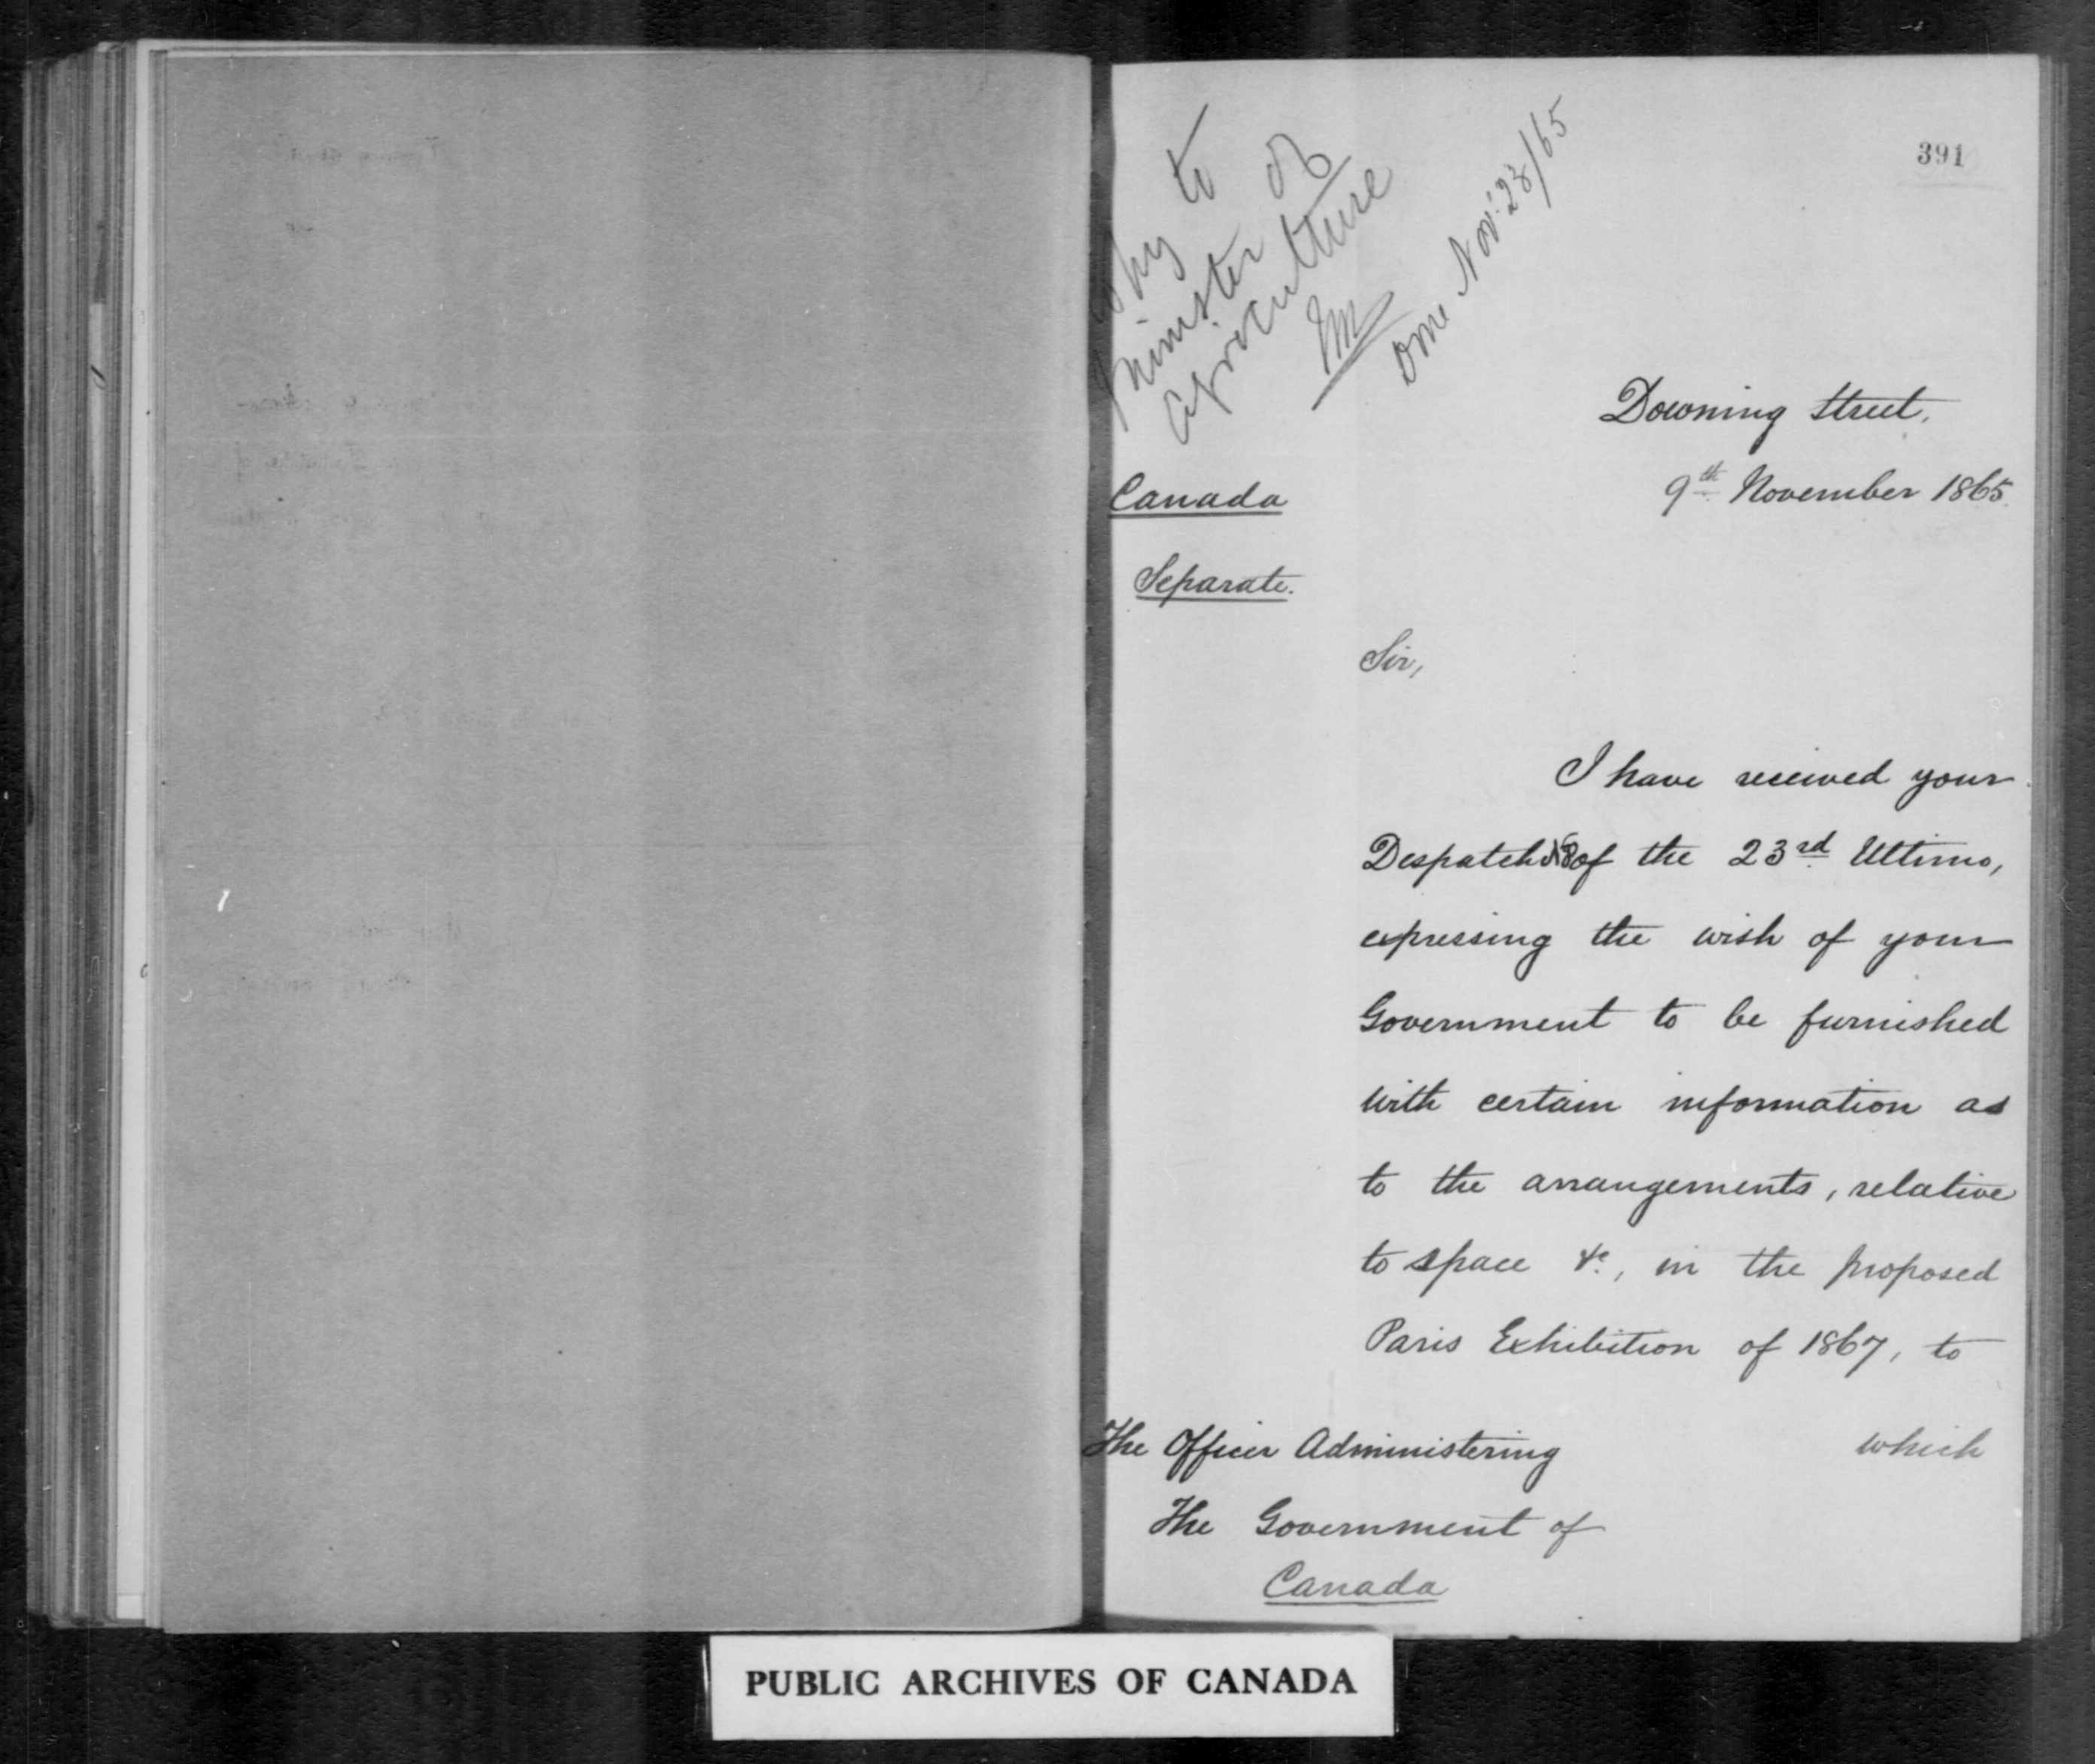 391
Copy to
Minister of
Agriculture
Done Nov: 28/65
Downing Street,
9th November 1865.
Canada
Separate.
Sir,
I have received your
Despatch of the 23rd Ultimo,
expressing the wish of your
Government to be furnished
with certain information as
to the arrangements, relative
to space &c., in the proposed
Paris Exhibition of 1867, to
which
The Officer Administering
The Government of
Canada
PUBLIC ARCHIVES OF CANADA